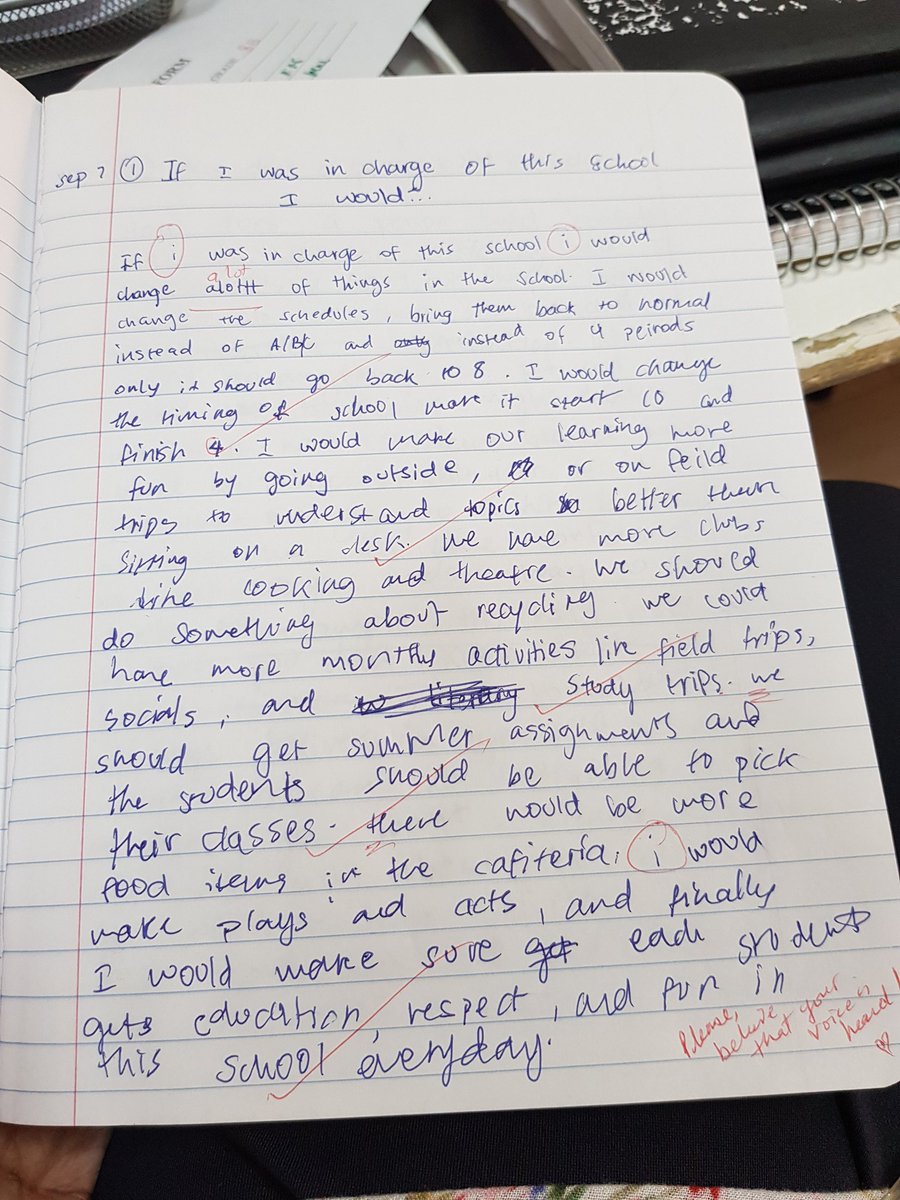 FORM
sep 7 ① If I was in charge of this school
I would...
If i was in charge of this school i would
a lot
change alott of things in the school. I would
change the schedules, bring them back to normal
instead of A/B/C and instead of 4 peirods
only it should go back to 8. I would change
the timing of school make it start 10 and
finish 4. I would make our learning more
fun by going outside, or on feild
trips to understand topics better then
sitting on a desk. We have more clubs
like cooking and theatre. We should
do something about recycling. We could
have more monthly activities like field trips,
socials, and study trips. we
should get summer assignments and
the students should be able to pick
their classes. there would be more
food items in the cafiteria, i would
make plays and acts, and finally
I would make sure each student
gets education, respect, and fun in
this school everyday.
Please,
believe
that your
voice is
heard!